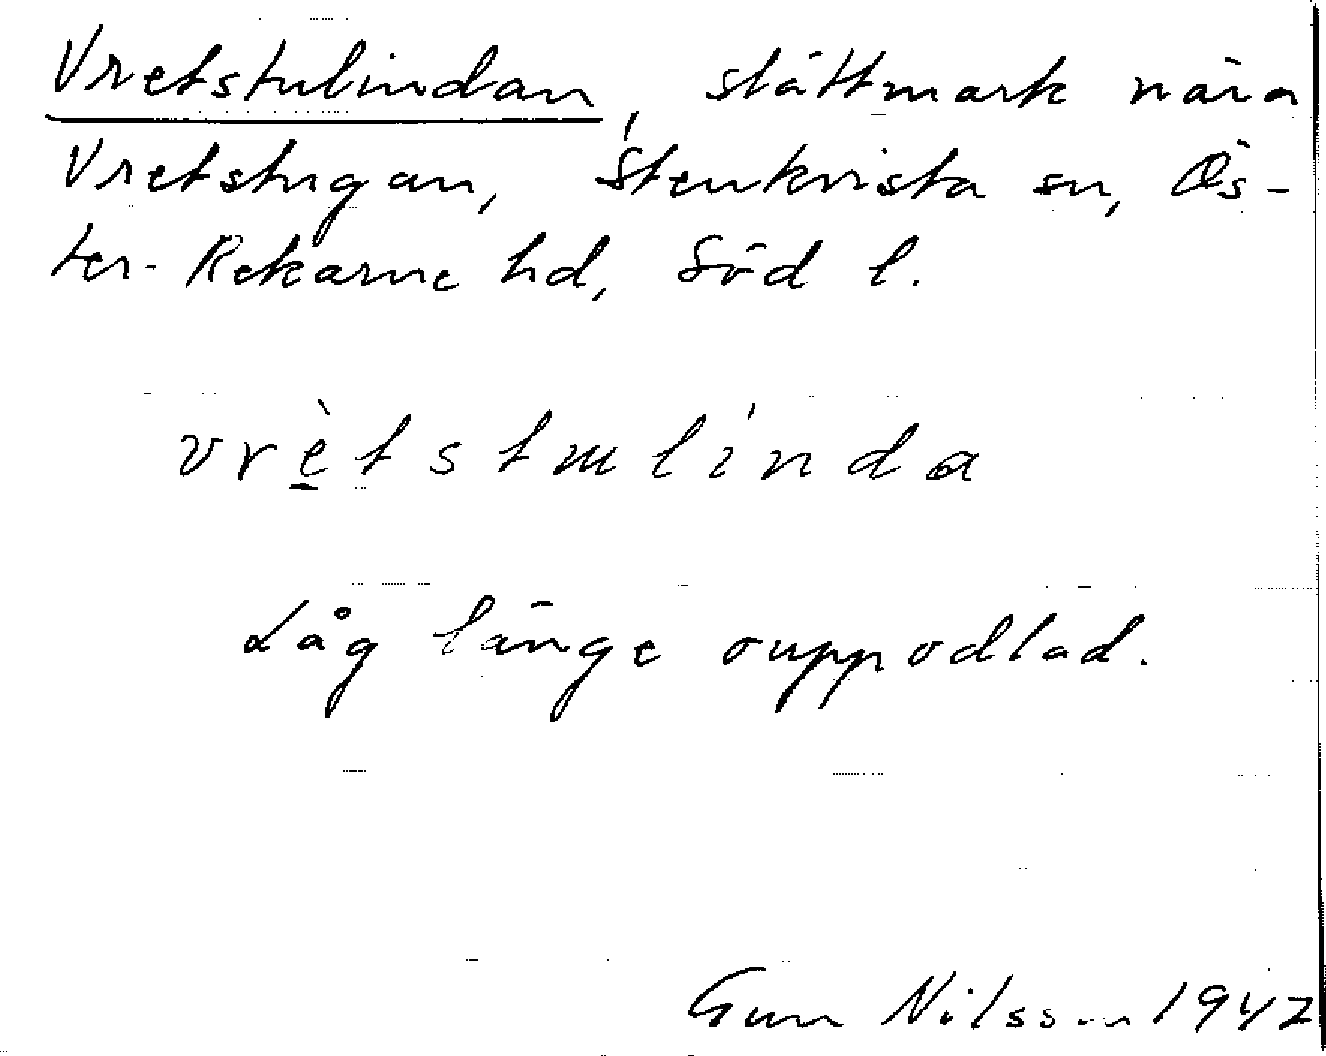 Vretstulindan, slåttmark nära
Vretstugan, Stenkvista sn, Ös-
ter-Rekarne hd, Söd l.
vrètstɯlínda
Låg länge ouppodlad.
Gun Nilsson 1942